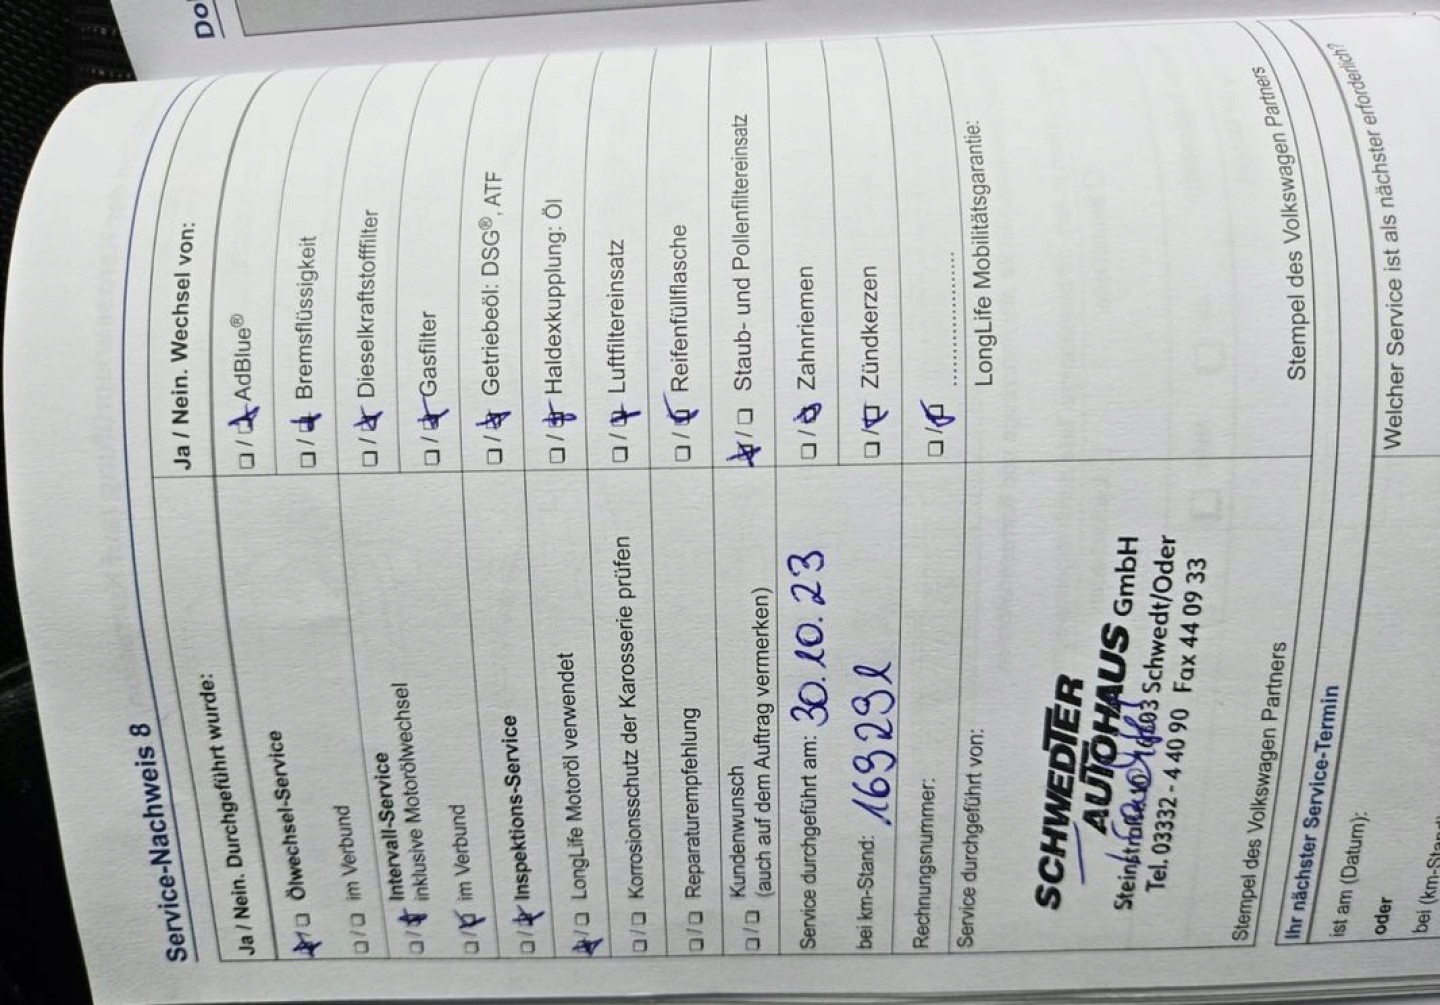 Do
Service-Nachweis 8
Ja / Nein. Durchgeführt wurde:
☒/☐ Ölwechsel-Service
☐/☐ im Verbund
Intervall-Service
☐/☒ inklusive Motorölwechsel
☐/☒ im Verbund
☐/☒ Inspektions-Service
☒/☐ LongLife Motoröl verwendet
☐/☐ Korrosionsschutz der Karosserie prüfen
☐/☐ Reparaturempfehlung
☐/☐ Kundenwunsch
(auch auf dem Auftrag vermerken)
Service durchgeführt am: 30.10.23
bei km-Stand: 169291
Rechnungsnummer:
Service durchgeführt von:
SCHWEDTER
AUTOHAUS GmbH
03 Schwedt/Oder
Tel. 03332 - 4 40 90 Fax 44 09 33
Stempel des Volkswagen Partners
Ja / Nein. Wechsel von:
☐/☒ AdBlue®
☐/☒ Bremsflüssigkeit
☐/☒ Dieselkraftstofffilter
☐/☒ Gasfilter
☐/☒ Getriebeöl: DSG®, ATF
☐/☒ Haldexkupplung: Öl
☐/☒ Luftfiltereinsatz
☐/☒ Reifenfüllflasche
☒/☐ Staub- und Pollenfiltereinsatz
☐/☒ Zahnriemen
☐/☒ Zündkerzen
☐/☒ ....................
LongLife Mobilitätsgarantie:
Stempel des Volkswagen Partners
Ihr nächster Service-Termin
ist am (Datum):
oder
bei (km-Stand)
Welcher Service ist als nächster erforderlich?